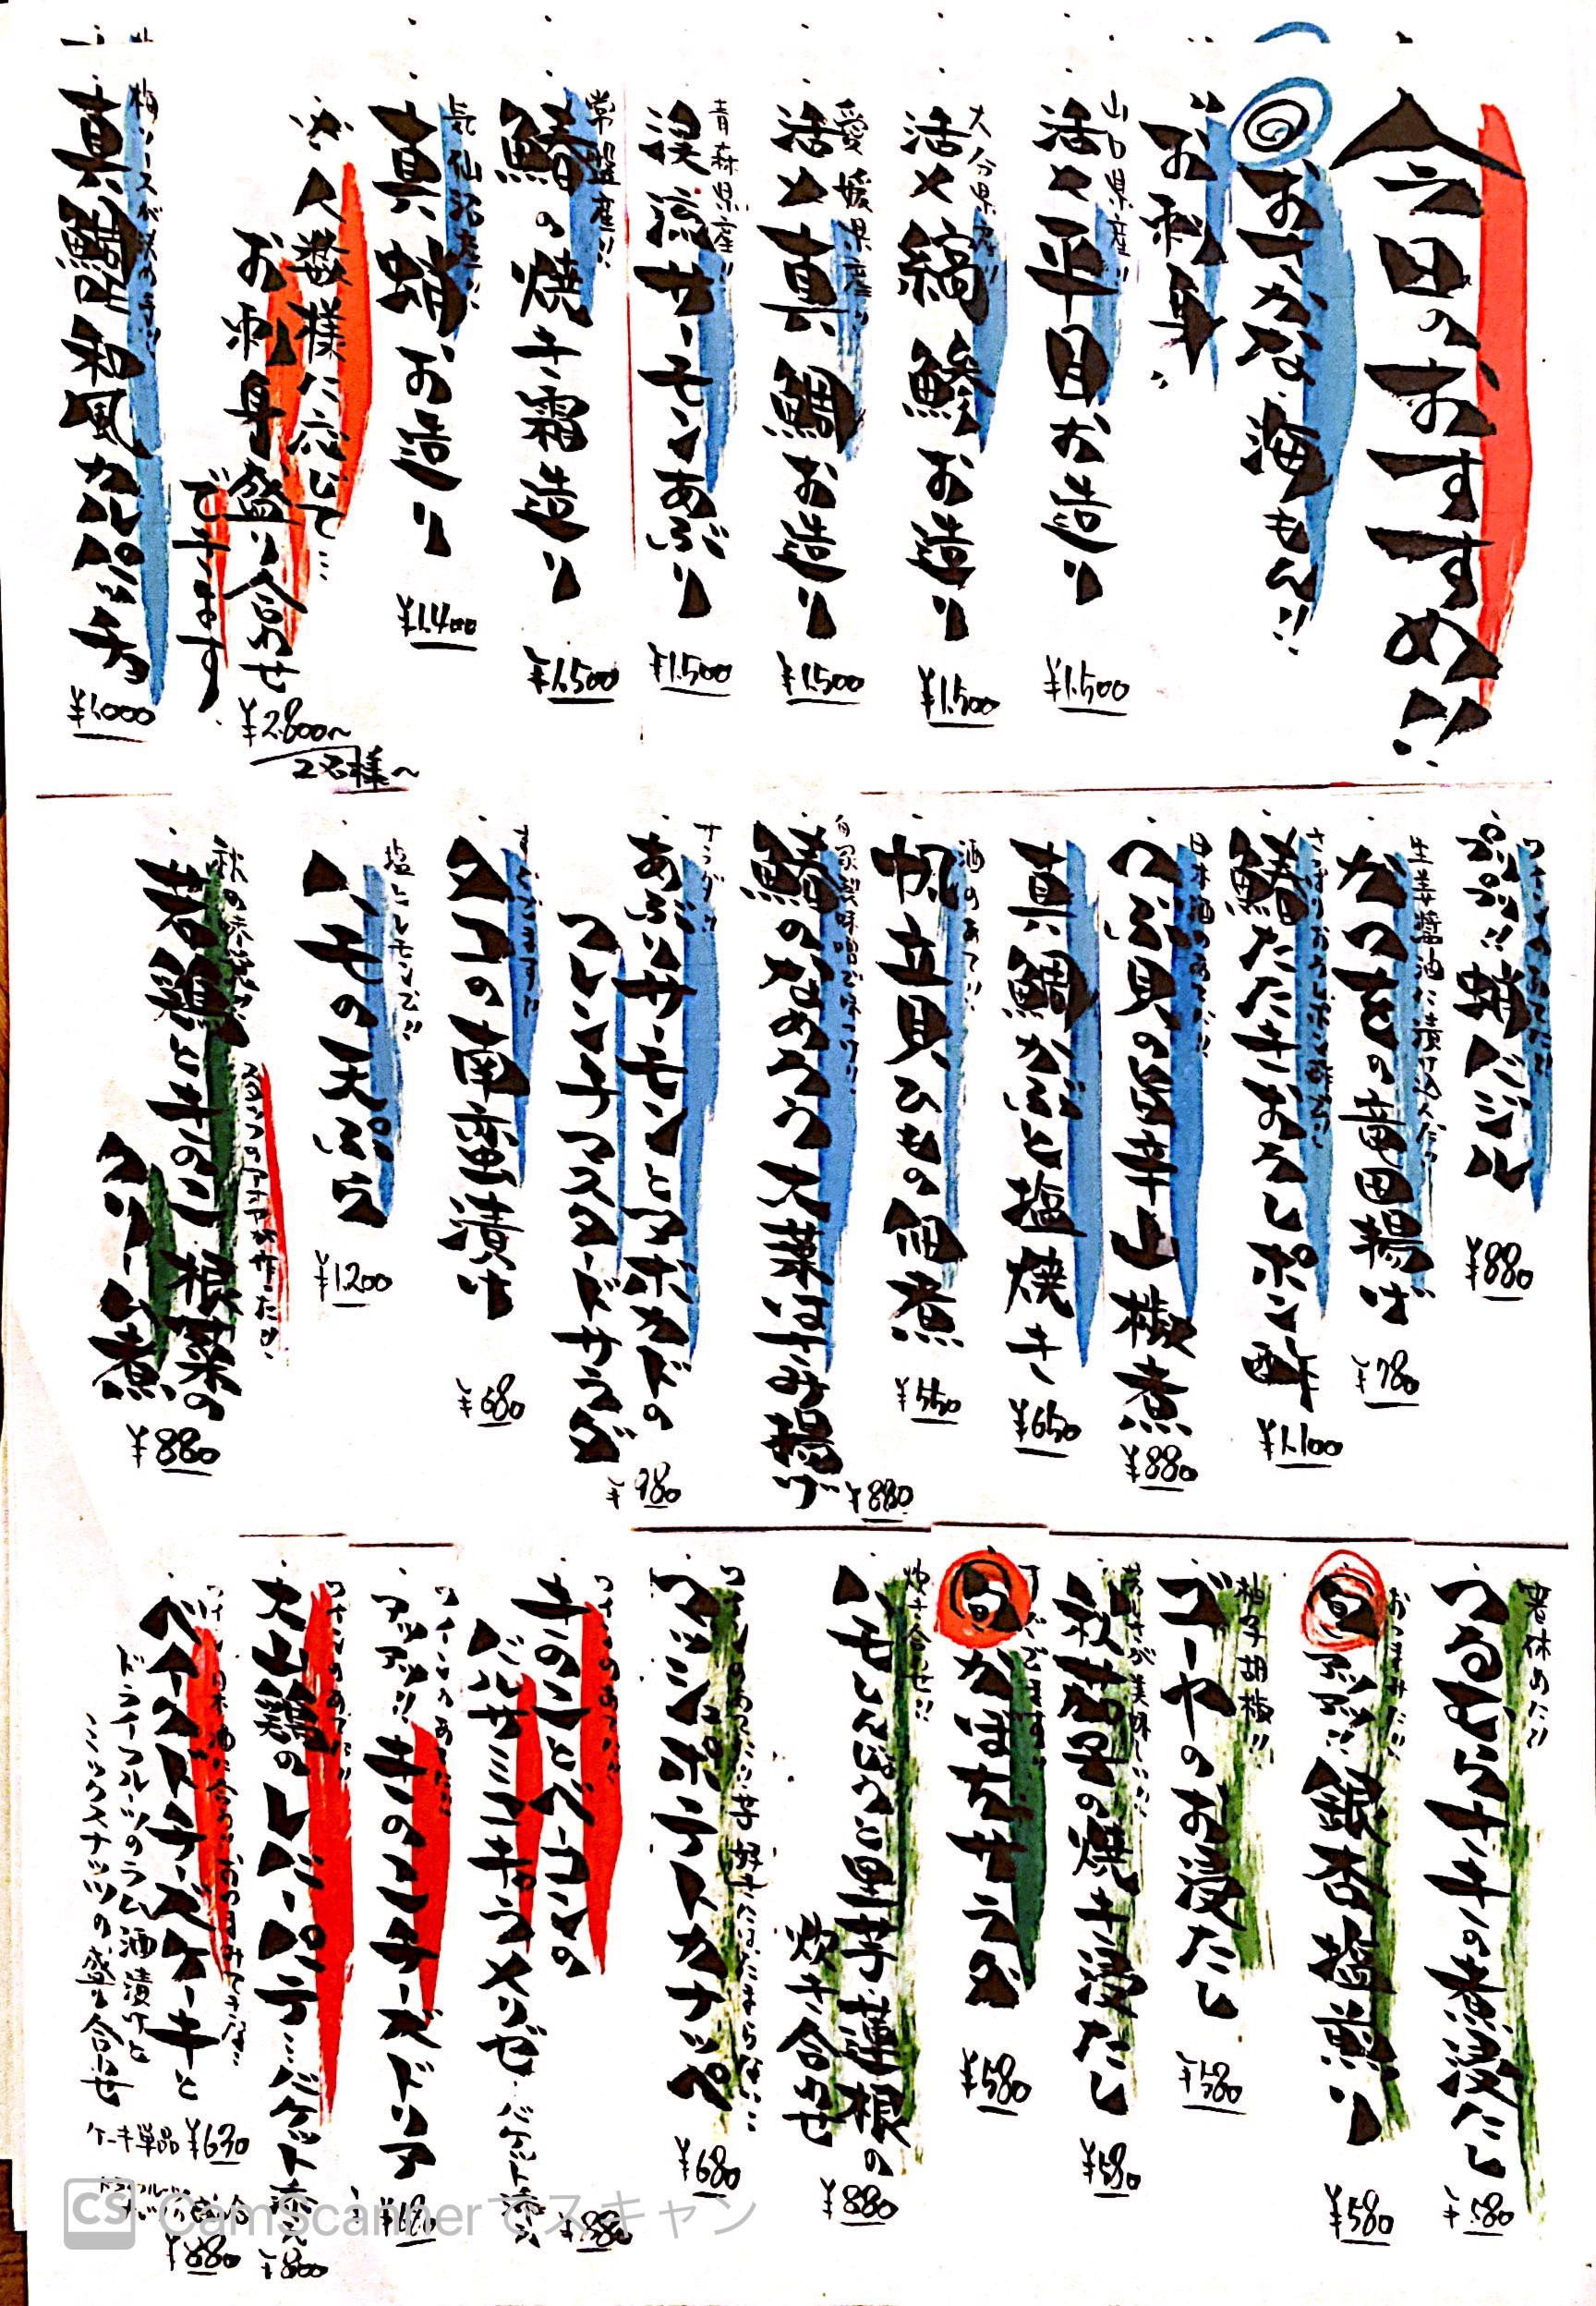 今日のおすすめ!!
おさかな・海もん!!
お刺身
山口県産!!
活〆平目お造り
¥1.500
大分県産!!
活〆縞鯵お造り
¥1.500
愛媛県産!!
活〆真鯛お造り
¥1.500
青森県産!!
サーモンあぶり
¥1.500
常盤産!!
鰆の焼き霜造り
¥1.500
気仙沼産!!
真蛸お造り
¥1.400
人数様に応じて…
お刺身盛り合わせ
できます
¥2.800〜
2名様〜
真鯛和風カルパッチョ
¥1.000
¥880
生姜醤油に漬け込んだ!!
かつおの竜田揚げ
¥780
鰆たたきおろしポン酢
¥1.100
日本酒のあてに!!
つぶ貝の旨辛山椒煮
¥880
真鯛かぶと塩焼き
¥650
酒のあてに!!
帆立貝ひもの佃煮
¥550
自家製味噌で味つけ!!
鰆のなめろう大葉はさみ揚げ
¥880
サラダ!!
あぶりサーモンとアボカドの
フレンチマスタードサラダ
¥980
の南蛮漬け
¥680
塩とレモンで!!
ハモの天ぷら
¥1200
秋の味覚!!
鶏ときのこ、根菜の
クリーム煮
¥880
箸休めに!!
つるむらさきの煮浸たし
¥580
おつまみに!!
旬
銀杏揚煎り
¥580
柚子胡椒!!
ゴーヤのお浸たし
¥580
秋茄子の焼き浸たし
¥580
旬
かぼちゃサラダ
¥580
炊き合せ!!
ハモしんじょうと里芋蓮根の
炊き合わせ
¥880
ワインのあてに!!芋好きにはたまらない…
マッシュポテトカナッペ
¥680
きのことベーコンの
バルサミコキッシュメリゼ・バゲット添え
¥880
ワインのあてに!!
アツアツ!!きのこチーズドリア
¥680
ワインのあてに!!
大山鶏のレバーパテ・バゲット添え
¥800
ベイクドチーズケーキと
ドライフルーツのラム酒漬けと
ミックスナッツの盛り合せ
ケーキ単品 ¥630
¥880
CS CamScannerでスキャン